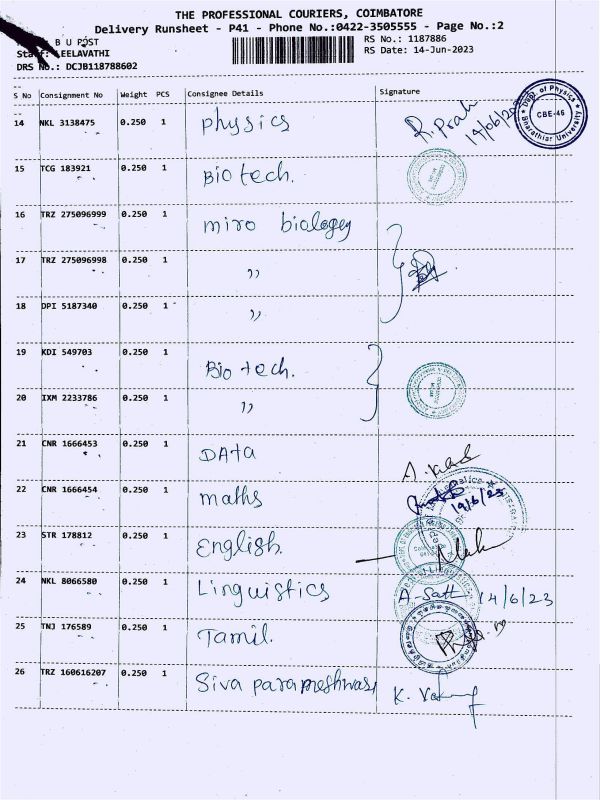 THE PROFESSIONAL COURIERS, COIMBATORE
Delivery Runsheet - P41 - Phone No.:0422-3505555 - Page No.:2
B U POST RS No.: 1187886
LEELAVATHI RS Date: 14-Jun-2023
DRS No.: DCJB118788602
S No Consignment No Weight PCS Consignee Details Signature
14 NKL 3138475 0.250 1 Physics R. Prah 14/06/20
Dept. of Physics CBE-46 Bharathiar University
15 TCG 183921 0.250 1 Bio tech.
16 TRZ 275096999 0.250 1 miro biology
17 TRZ 275096998 0.250 1 ,,
18 DPI 5187340 0.250 1 ,,
19 KDI 549703 0.250 1 Bio tech.
20 IXM 2233786 0.250 1 ,,
21 CNR 1666453 0.250 1 DAta
22 CNR 1666454 0.250 1 maths 14/6/23
23 STR 178812 0.250 1 English.
24 NKL 8066580 0.250 1 Linguistics A-Sath 14/6/23
25 TNJ 176589 0.250 1 Tamil.
26 TRZ 160616207 0.250 1 Siva parameshwasi K.